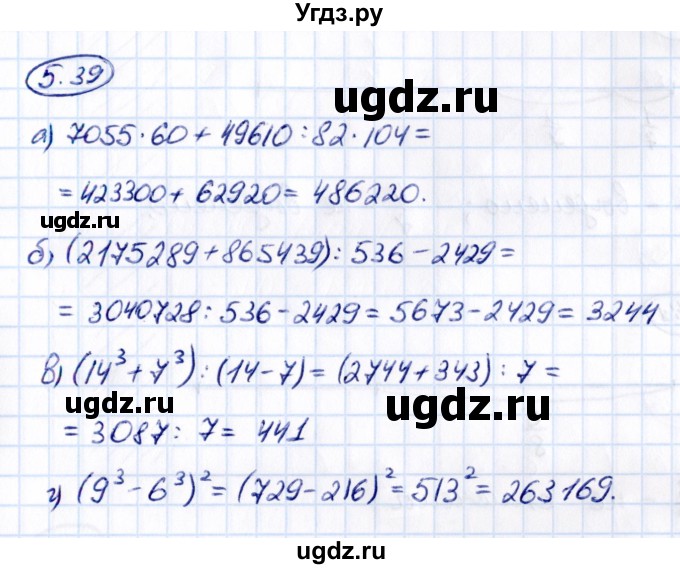 Угдз.ру
5.39
ugdz.ru
а) 7055·60+49610:82·104=
=423300+62920=486220.
ugdz.ru
б) (2175289+865439):536-2429=
=3040728:536-2429=5673-2429=3244
ugdz.ru
в) (14³+7³):(14-7)=(2744+343):7=
ugdz.ru
=3087:7=441
г) (9³-6³)²=(729-216)²=513²=263169.
ugdz.ru